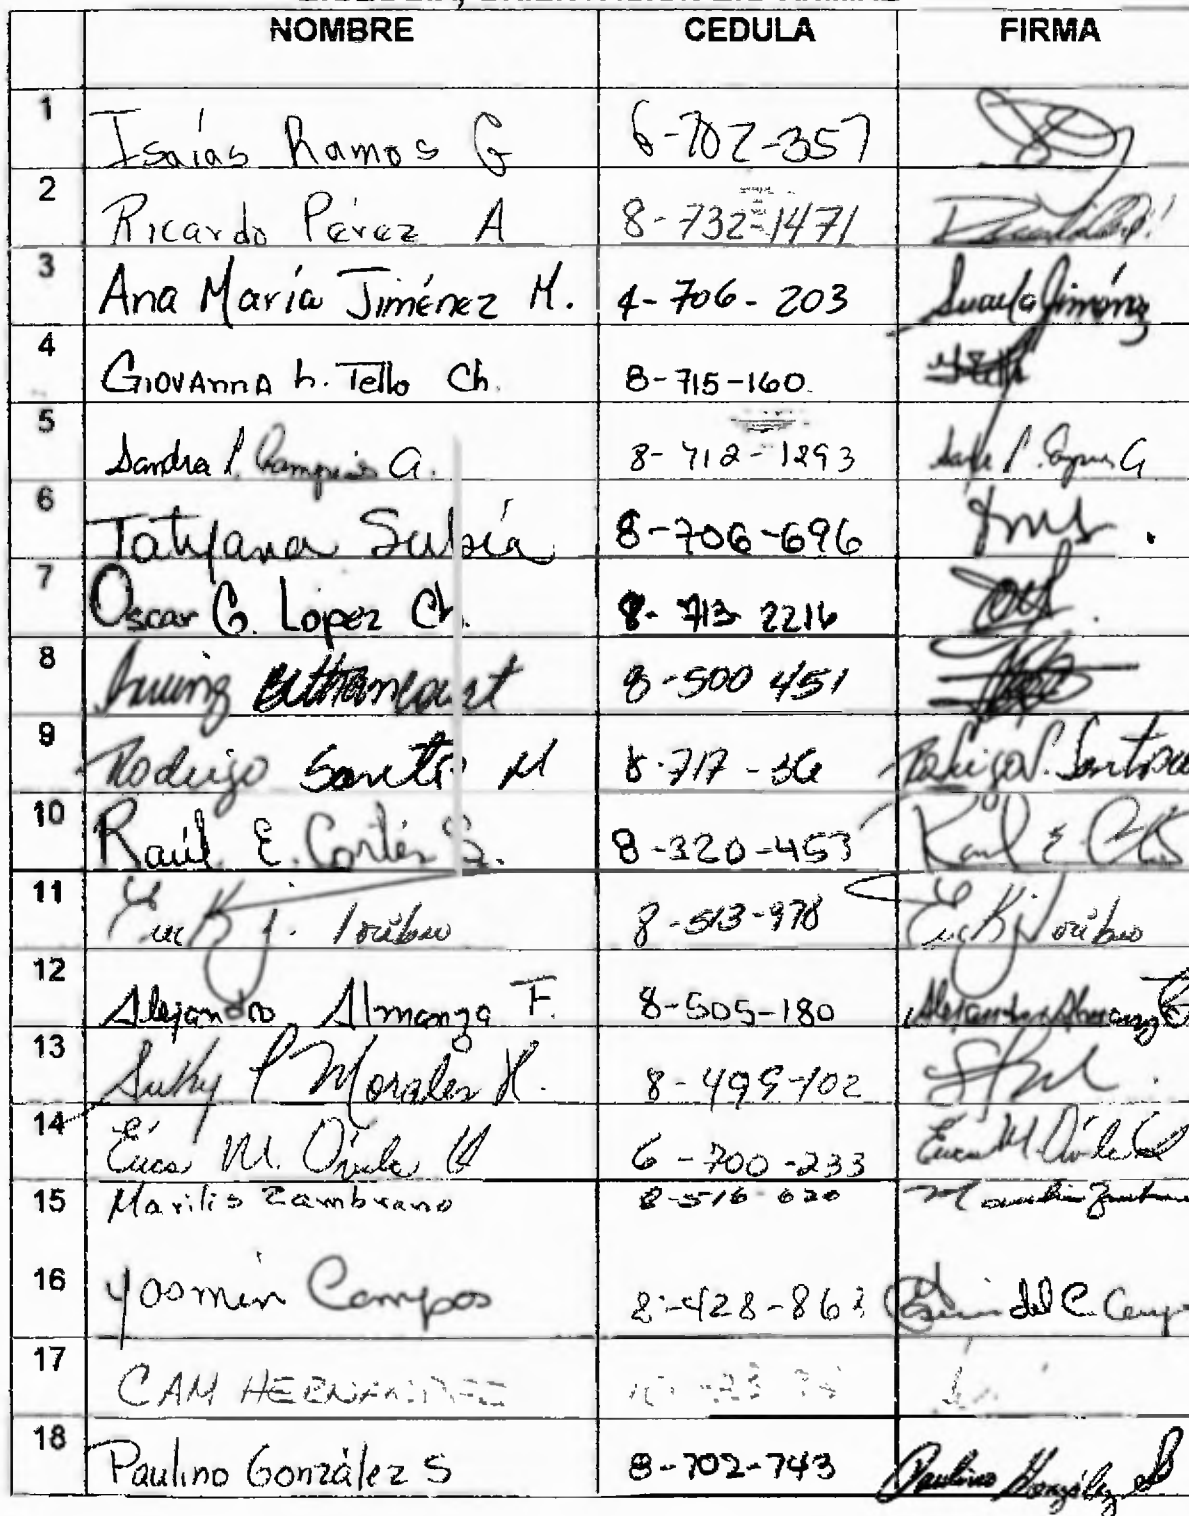 NOMBRE CEDULA FIRMA
1 Isaías Ramos G 6-702-357
2 Ricardo Pérez A 8-732-1471
3 Ana María Jiménez M. 4-706-203
4 Giovanna L. Tello Ch. 8-715-160
5 Sandra I. A. 8-712-1293
6 Tatyana Subía 8-706-696
7 Oscar G. López Ch. 8-713 2216
8 Irving Bethancourt 8-500 451
9 Rodrigo Santos M 8-717-36
10 Raúl E. Cortés G. 8-320-453 Raúl E.
11 Erick J. Toribio 8-513-978 Erick J Toribio
12 Alejandro Almanza F. 8-505-180 Alejandro Almanza F
13 Morales H. 8-499-102
14 M. 6-700-233
15 Marilis Zambrano 8-516-620
16 Yasmin Campos 8-428-863 del C.
17 CAM HERNANDEZ
18 Paulino González S 8-702-743 Paulino González S